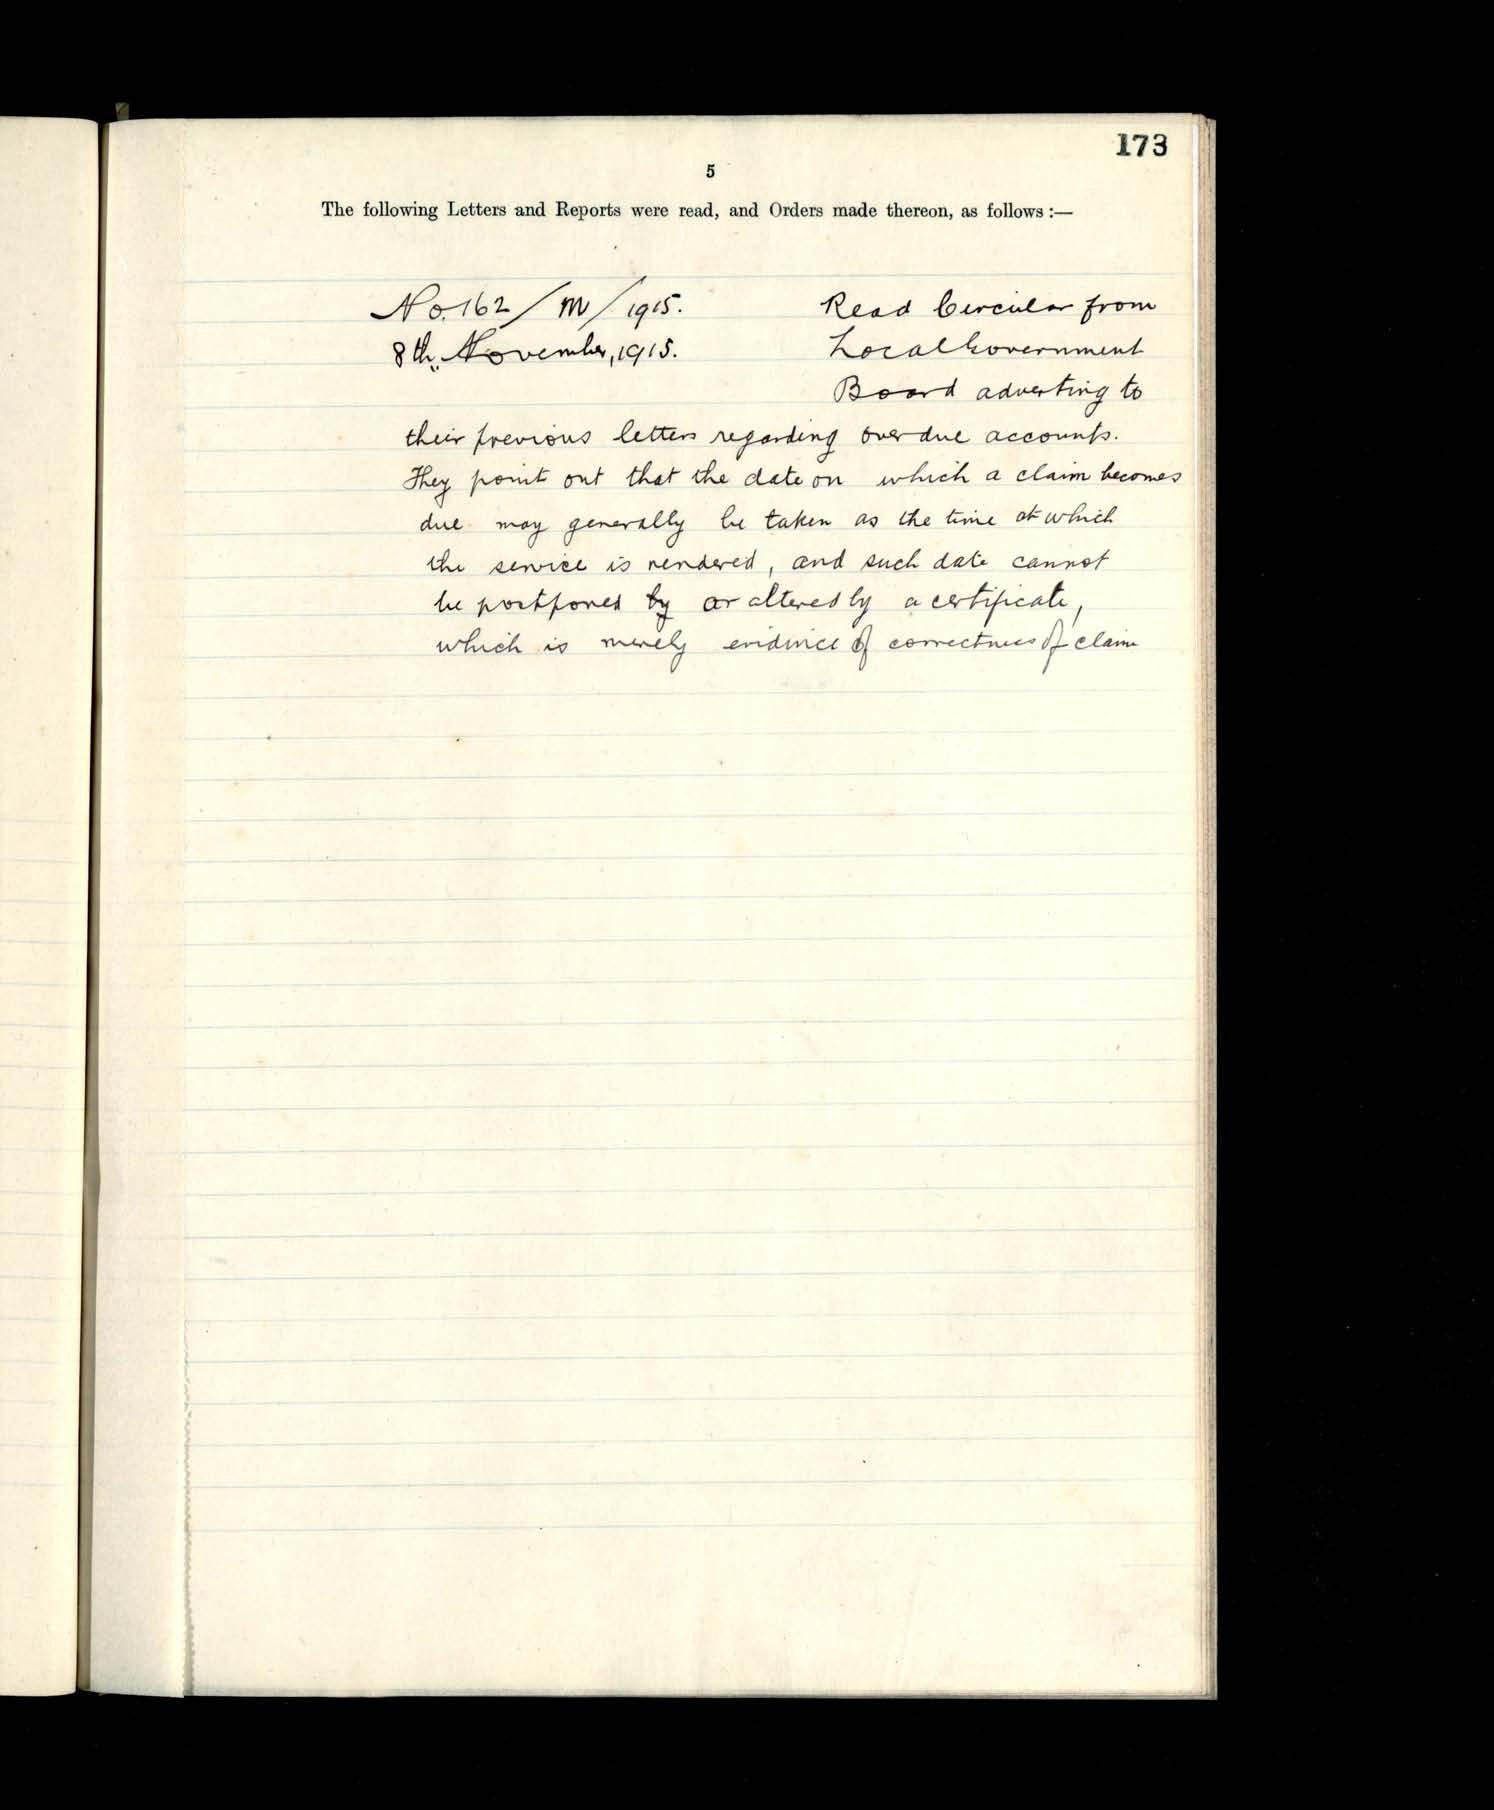 173
5
The following Letters and Reports were read, and Orders made thereon, as follows :—
No. 162/M/1915.
8th November, 1915.
Read Circular from
Local Government
Board adverting to
their previous letters regarding overdue accounts.
They point out that the date on which a claim becomes
due may generally be taken as the time at which
the service is rendered, and such date cannot
be postponed by or altered by a certificate,
which is merely evidence of correctness of claim